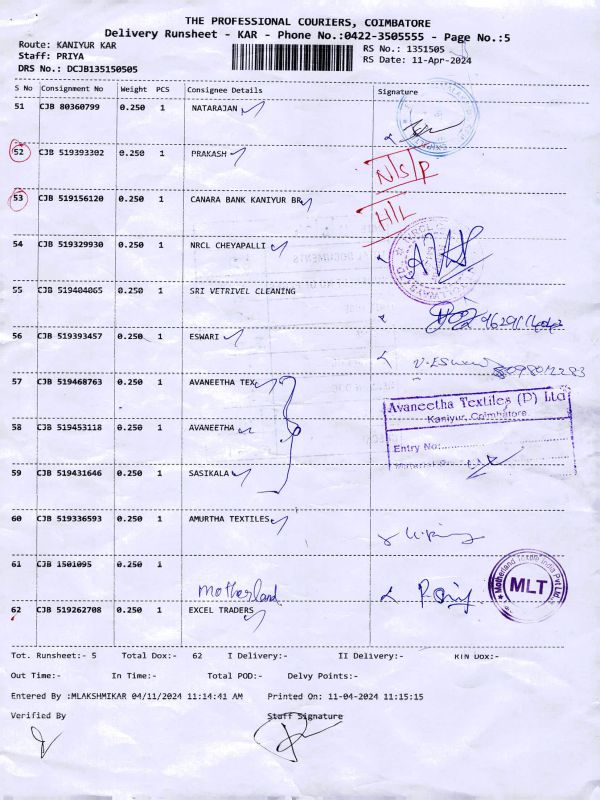 THE PROFESSIONAL COURIERS, COIMBATORE
Delivery Runsheet - KAR - Phone No.:0422-3505555 - Page No.:5
Route: KANIYUR KAR
RS No.: 1351505
Staff: PRIYA
RS Date: 11-Apr-2024
DRS No.: DCJB135150505
S No Consignment No Weight PCS Consignee Details Signature
51 CJB 80360799 0.250 1 NATARAJAN
52 CJB 519393302 0.250 1 PRAKASH
N/S/P
53 CJB 519156120 0.250 1 CANARA BANK KANIYUR BR
H/L
54 CJB 519329930 0.250 1 NRCL CHEYAPALLI
55 CJB 519404065 0.250 1 SRI VETRIVEL CLEANING
56 CJB 519393457 0.250 1 ESWARI
V.ESwari
8098012283
57 CJB 519468763 0.250 1 AVANEETHA TEX
Avaneetha Textiles (P) Ltd
Kaniyur, Coimbatore.
58 CJB 519453118 0.250 1 AVANEETHA
Entry No:
59 CJB 519431646 0.250 1 SASIKALA
60 CJB 519336593 0.250 1 AMURTHA TEXTILES
61 CJB 1501095 0.250 1
Motherland
MLT
62 CJB 519262708 0.250 1 EXCEL TRADERS
Tot. Runsheet:- 5 Total Dox:- 62 I Delivery:- II Delivery:- RTN Dox:-
Out Time:- In Time:- Total POD:- Delvy Points:-
Entered By :MLAKSHMIKAR 04/11/2024 11:14:41 AM Printed On: 11-04-2024 11:15:15
Verified By Staff Signature